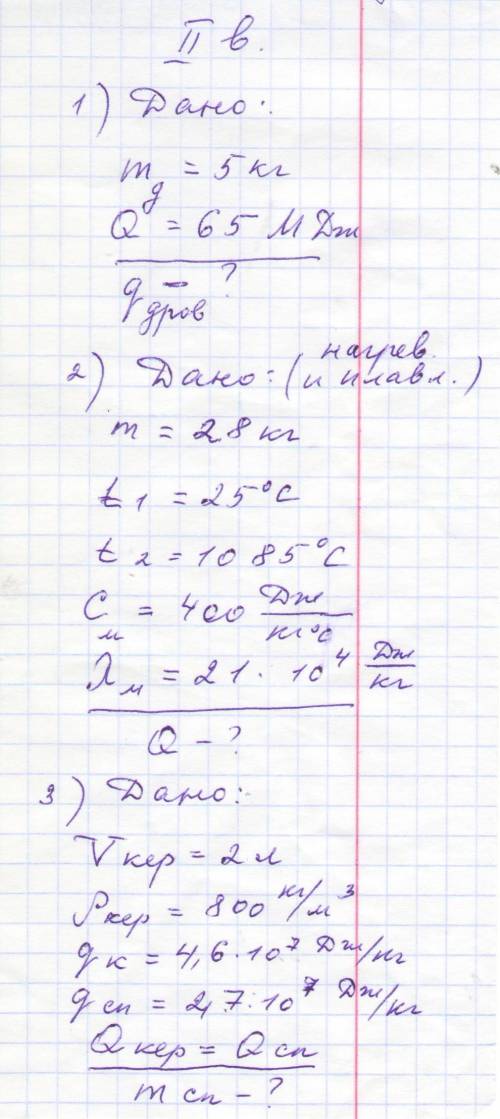 II в.
1) Дано:
m д = 5 кг
Q = 65 МДж
q дров - ?
2) Дано: (нагрев. и плавл.)
m = 28 кг
t₁ = 25°С
t₂ = 1085°С
См = 400 Дж/кг°С
λм = 21 · 10⁴ Дж/кг
Q - ?
3) Дано:
Vкер = 2 л
ρкер = 800 кг/м³
qк = 4,6·10⁷ Дж/кг
qсп = 2,7·10⁷ Дж/кг
Qкер = Qсп
mсп - ?